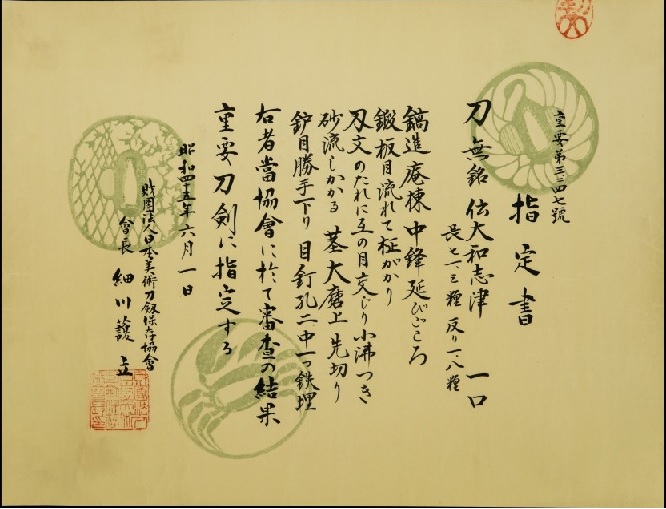 重要第三三四七號
指定書
刀 無銘 伝大和志津 一口
長七一、三糎 反り一、八糎
鎬造 庵棟 中鋒延びごころ
鍛板目流れて柾がかり
刃文のたれに互の目交じり小沸つき
砂流しかかる 茎大磨上 先切り
鑢目勝手下り 目釘孔二中一つ鉄埋
右者當協會に於て審査の結果
重要刀剣に指定する
昭和四十五年六月一日
財團法人日本美術刀剣保存協會
會長 細川護立